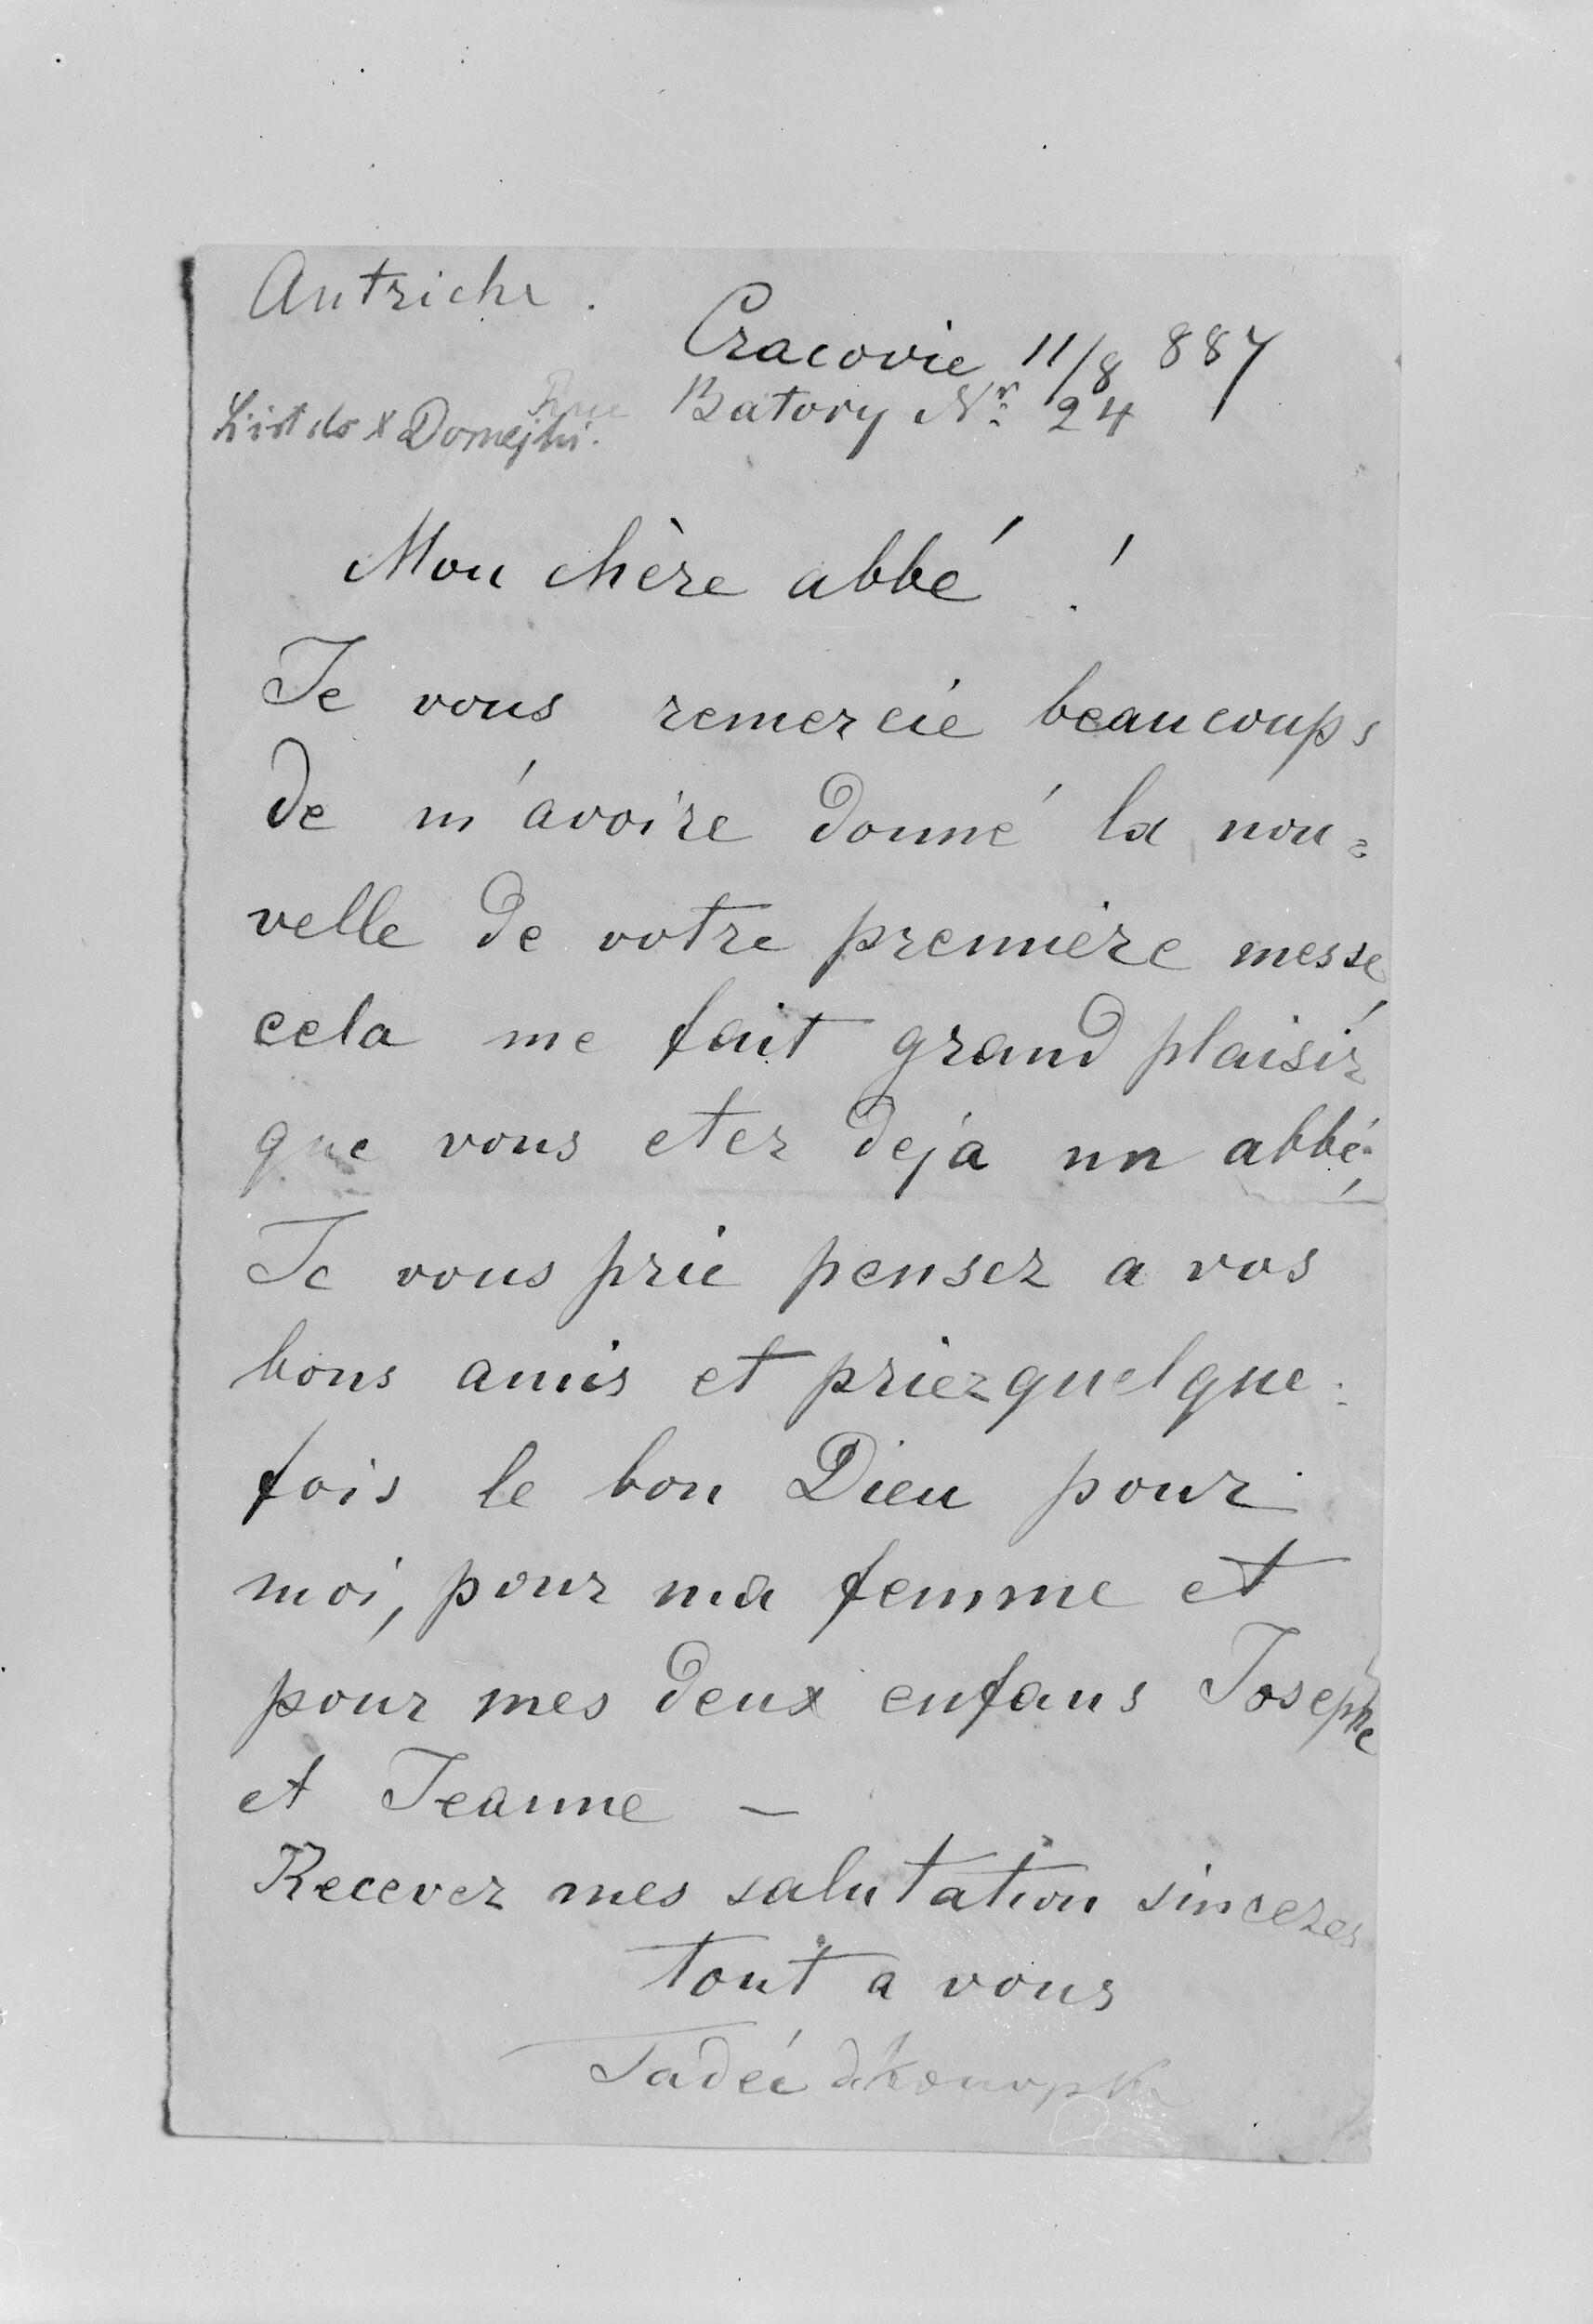 Autriche.
Cracovie 11/8 887
Rue Batory Nr. 24
List do X Domejki.
Mon chère abbé !
Je vous remercie beaucoups
de m'avoire donné la nou=
velle de votre première messe
cela me fait grand plaisir
que vous etez deja un abbé,
Je vous prie pensez a vos
bons amis et priez quelque=
fois le bon Dieu pour
moi, pour ma femme et
pour mes deux enfans Josephe
et Jeanne –
Recevez mes salutation sinceres
tout a vous
Tadeé de Konopka